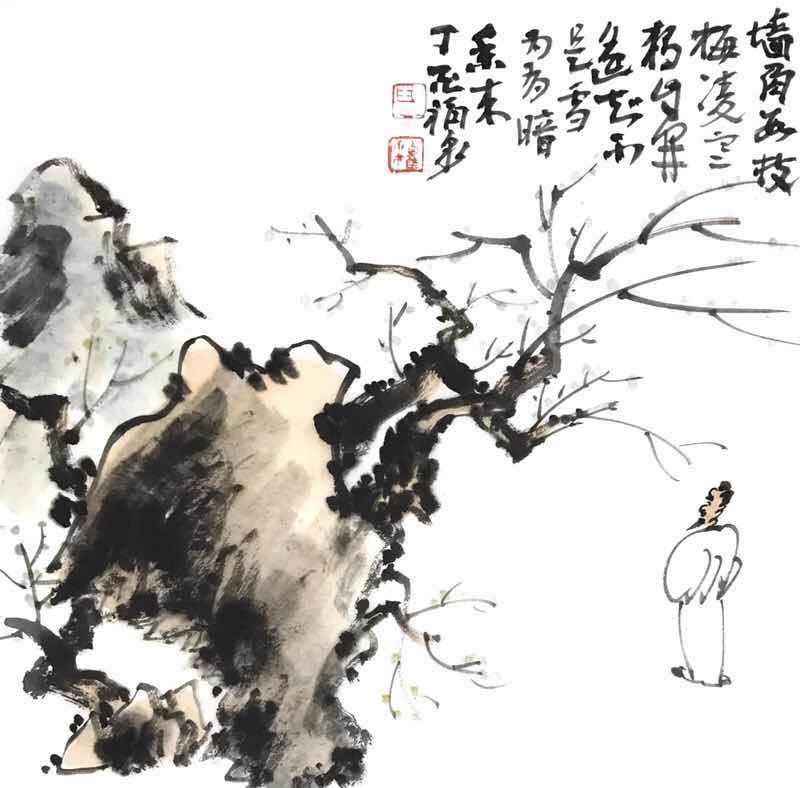 墙角数枝
梅凌寒
独自开
遥知不
是雪
为有暗
香来
丁酉